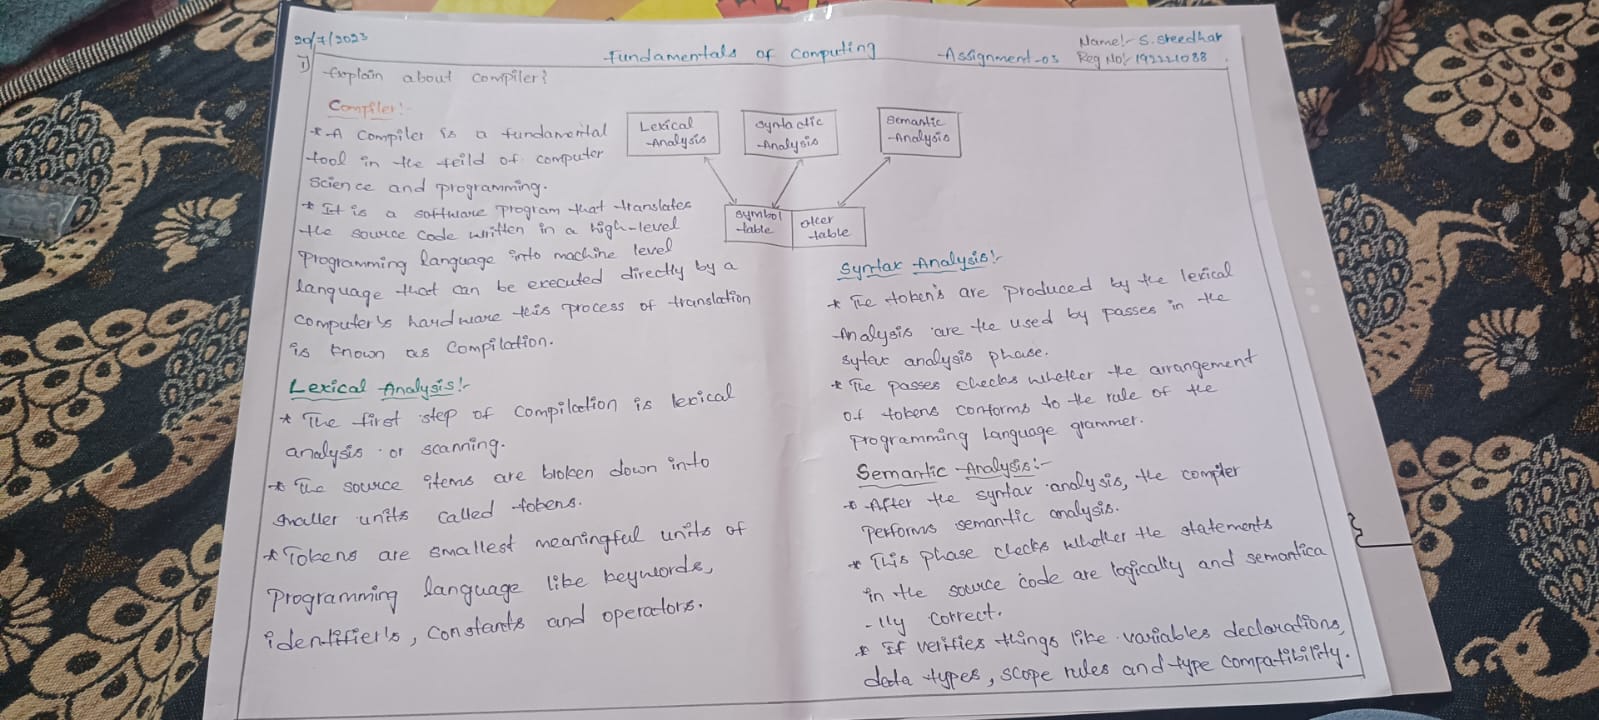 20/7/2023
Fundamentals of Computing -Assignment-03
Name:- S. Sreedhar
Reg No:- 192221088
1) Explain about compiler?
Compiler:-
* A Compiler is a fundamental
tool in the feild of computer
Science and programming.
* It is a software program that translates
the source code written in a high-level
Programming language into machine level
language that can be executed directly by a
Computer's hardware this process of translation
is known as Compilation.
Lexical Analysis:-
* The first step of Compilation is lexical
analysis or scanning.
* The source items are broken down into
smaller units called tokens.
* Tokens are smallest meaningful units of
Programming language like keywords,
identifier's, Constants and operators.
Lexical
-Analysis
Syntactic
-Analysis
Semantic
-Analysis
Symbol
table
other
table
Syntax Analysis:-
* The token's are produced by the lexical
-Analysis are the used by passes in the
sytax analysis phause.
* The passes checks whether the arrangement
Of tokens conforms to the rule of the
Programming language grammer.
Semantic -Analysis:-
* After the syntax analysis, the compiler
Performs semantic analysis.
* This phase checks whether the statements
in the source code are logically and semantica
-lly correct.
* If verifies things like variables declarations,
data types, scope rules and type compatibility.